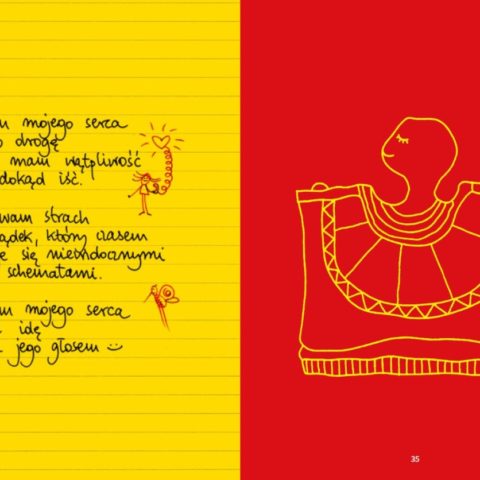 mojego serca
drogę
mam wątpliwość
dokąd iść.
wam strach
ądek, który czasem
e się niewidocznymi
schematami.
mojego serca
idę
jego głosem
35